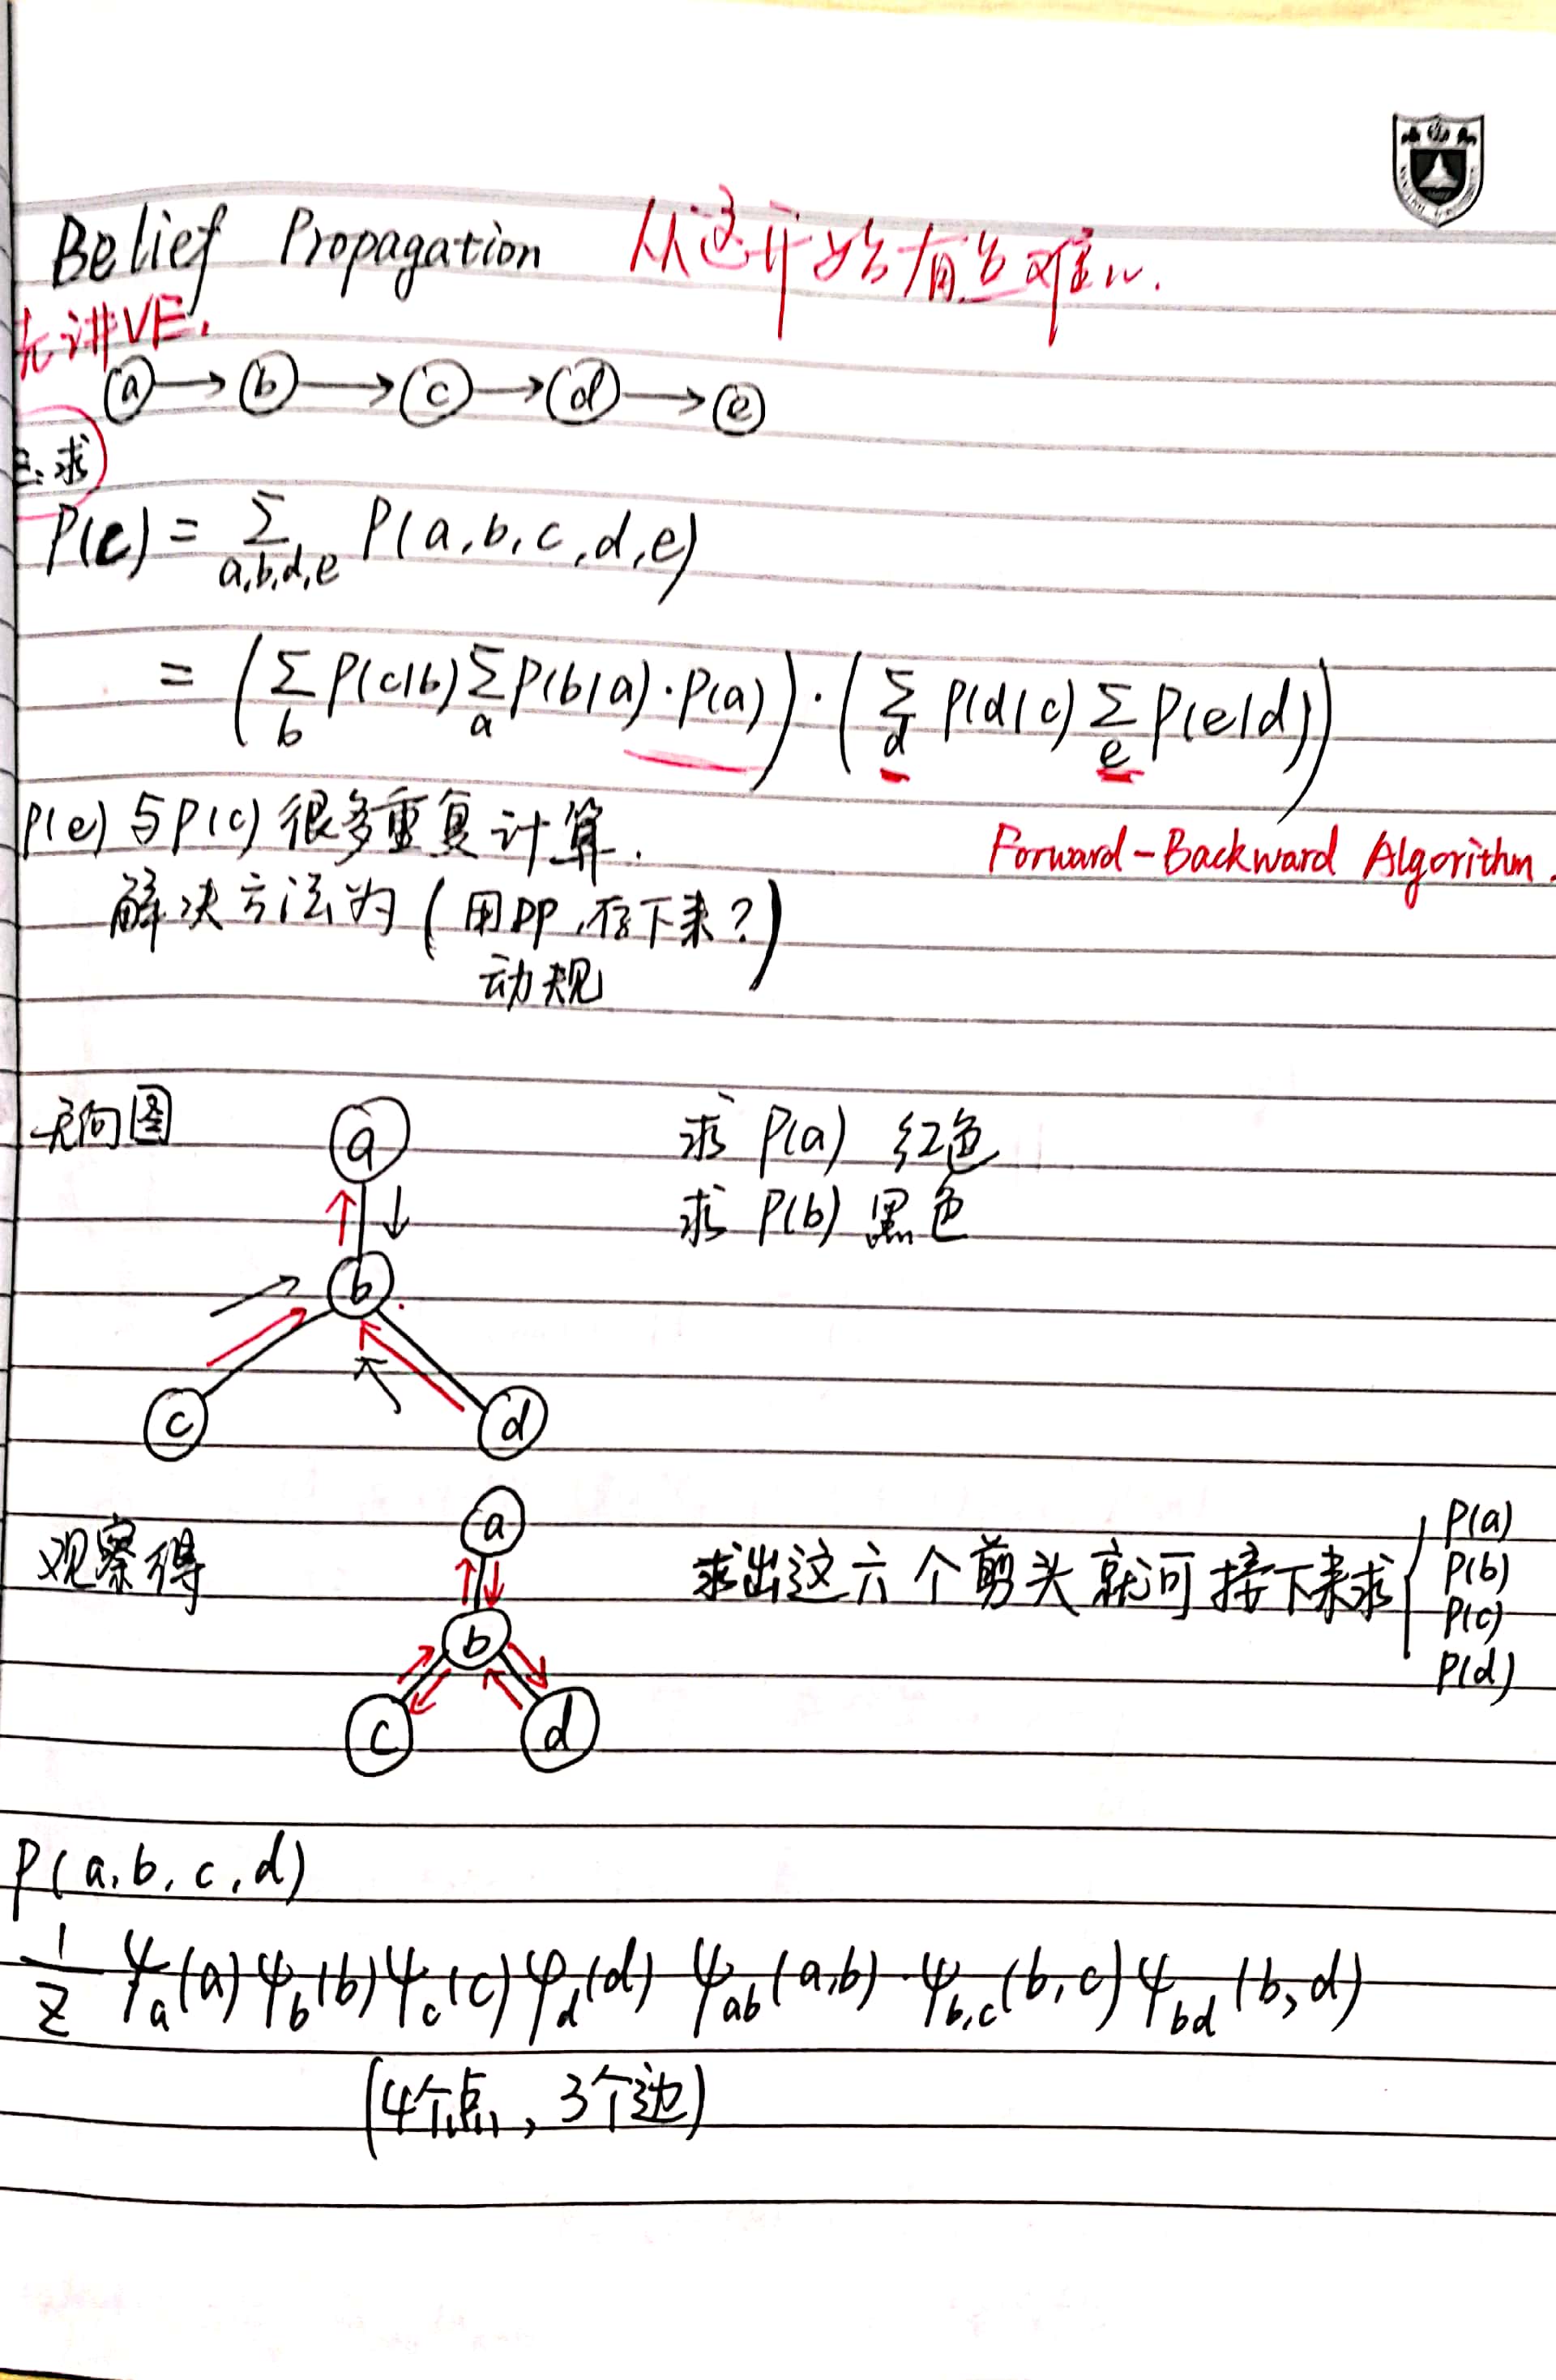 Belief Propagation 从这开始有些难w.
先讲VE.
a → b → c → d → e
求
P(c) = Σ_{a,b,d,e} P(a,b,c,d,e)
= (Σ_b P(c|b) Σ_a P(b|a)·P(a))·(Σ_d P(d|c) Σ_e P(e|d))
P(e)与P(c)很多重复计算.
Forward-Backward Algorithm.
解决方法为(用DP,存下来?)
动规
无向图
a
b
c
d
求 P(a) 红色
求 P(b) 黑色
观察得
a
b
c
d
求出这六个剪头就可接下来求 { P(a) P(b) P(c) P(d)
P(a,b,c,d)
1/Z ψ_a(a) ψ_b(b) ψ_c(c) φ_d(d) ψ_ab(a,b)·ψ_b,c(b,c) ψ_bd(b,d)
(4个点,3个边)